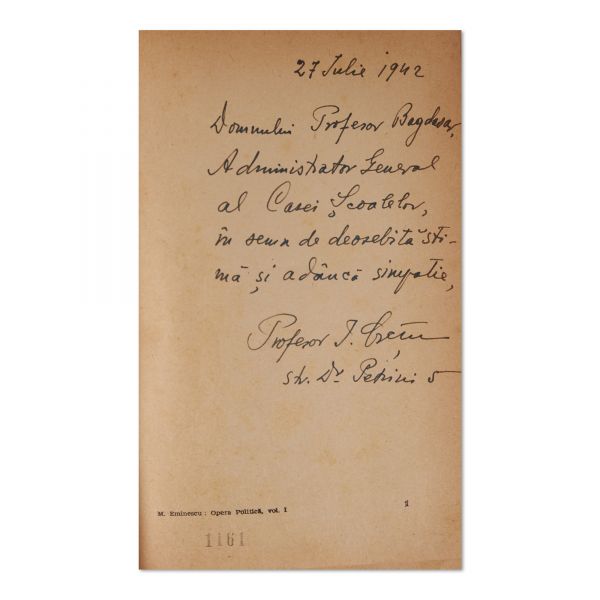 27 Iulie 1942
Domnului Profesor Bagdasar,
Administrator General
al Casei Școalelor,
în semn de deosebită sti-
mă și adâncă simpatie,
Profesor I. Crețu
str. Dr Petrini 5
M. Eminescu : Opera Politică, vol. I
1
1161